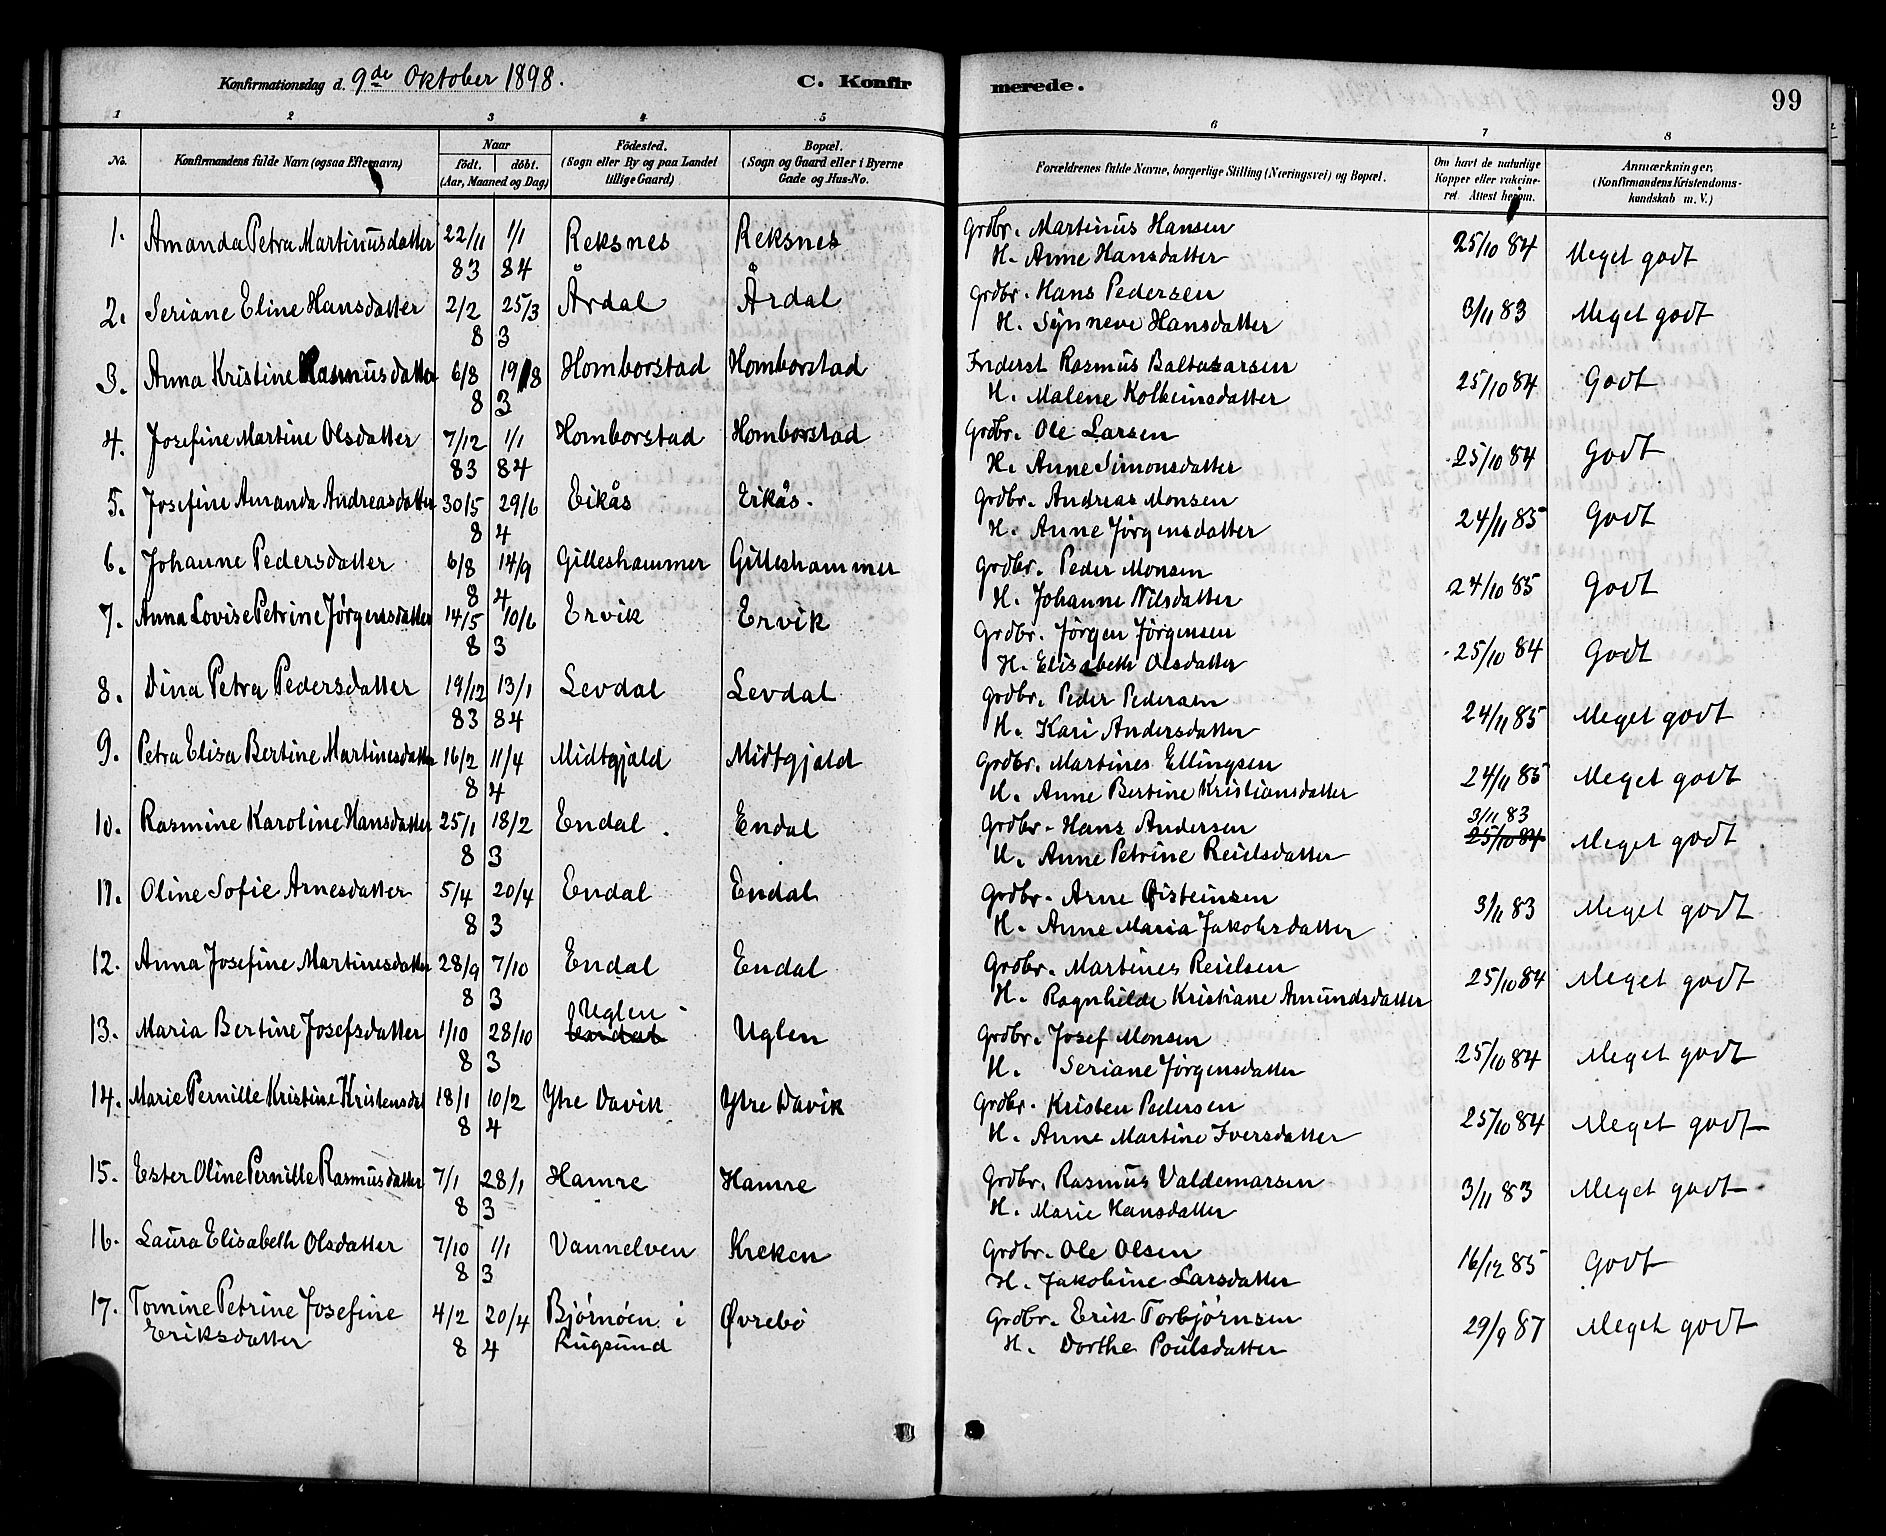 Konfirmationsdag d. 9de Oktober 1898.
C. Konfirmerede.
99
1 2 3 4 5 6 7 8
No.
Konfirmandens fulde Navn (ogsaa Efternavn)
Naar
födt. döbt.
(Aar, Maaned og Dag)
Födested.
(Sogn eller By og paa Landet
tillige Gaard)
Bopæl.
(Sogn og Gaard eller i Byerne
Gade og Hus-No.
Forældrenes fulde Navne, borgerlige Stilling (Næringsvei) og Bopæl.
Om havt de naturlige
Kopper eller vakcine-
ret. Attest herom.
Anmærkninger,
(Konfirmandens Kristendoms-
kundskab m. V.)
1. Amanda Petra Martinusdatter 22/11 83 1/1 84 Reksnes Reksnes Grdbr. Martinus Hansen
H. Anne Hansdatter 25/10 84 Meget godt
2. Seriane Eline Hansdatter 2/2 25/3 83 Årdal Årdal Grdbr. Hans Pedersen
H. Synneve Hansdatter 3/11 83 Meget godt
3. Anna Kristine Rasmusdatter 6/8 19/8 83 Homborstad Homborstad Inderst Rasmus Baltasarsen
H. Malene Kolbeinsdatter 25/10 84 Godt
4. Josefine Martine Olsdatter 7/12 83 1/1 84 Homborstad Homborstad Grdbr. Ole Larsen
H. Anne Simonsdatter 25/10 84 Godt
5. Josefine Amanda Andreasdatter 30/5 29/6 84 Eikås Eikås. Grdbr. Andreas Monsen
H. Anne Jørgensdatter 24/11 85 Godt
6. Johanne Pedersdatter 6/8 14/9 84 Gilleshammer Gilleshammer Grdbr. Peder Monsen
H. Johanne Nilsdatter 24/10 85 Godt
7. Anna Lovise Petrine Jørgensdatter 14/5 10/6 83 Ervik Ervik Grdbr. Jørgen Jørgensen
H. Elisabeth Olsdatter 25/10 84 Godt
8. Dina Petra Pedersdatter 19/12 83 13/1 84 Levdal Levdal Grdbr. Peder Pedersen
H. Kari Andersdatter 24/11 85 Meget godt
9. Petra Elisa Bertine Martinesdatter 16/2 11/4 84 Midtgjald Midtgjald Grdbr. Martines Ellingsen
H. Anne Bertine Kristiansdatter 24/11 85 Meget godt
10. Rasmine Karoline Hansdatter 25/1 18/2 83 Endal. Endal Grdbr. Hans Andersen
H. Anne Petrine Reielsdatter 3/11 83 25/10 84 Meget godt
11. Oline Sofie Arnesdatter 5/4 20/4 83 Endal Endal Grdbr. Arne Øisteinsen
H. Anne Maria Jakobsdatter 3/11 83 Meget godt
12. Anna Josefine Martinesdatter 28/9 7/10 83 Endal Endal Grdbr. Martines Reielsen
H. Ragnhilde Kristiane Amundsdatter 25/10 84 Meget godt
13. Maria Bertine Josefsdatter 1/10 28/10 83 Uglen Endal Uglen Grdbr. Josef Monsen
H. Seriane Jørgensdatter 25/10 84 Meget godt
14. Marie Pernille Kristine Kristensdat 18/1 10/2 84 Ytre Davik Ytre Davik Grdbr. Kristen Pedersen
H. Anne Martine Iversdatter 25/10 84 Meget godt
15. Ester Oline Pernille Rasmusdatter 7/1 28/1 83 Hamre Hamre Grdbr. Rasmus Valdemarsen
H. Marie Hansdatter 3/11 83 Meget godt
16. Laura Elisabeth Olsdatter 7/10 1/1 83 Vannelven Kreken Grdbr. Ole Olsen
H. Jakobine Larsdatter 16/12 85 Godt
17. Tomine Petrine Josefine
Eriksdatter 4/2 20/4 84 Bjørnøen i
Rugsund Øvrebö Grdbr. Erik Torbjørnsen
H. Dorthe Poulsdatter 29/9 87 Meget godt